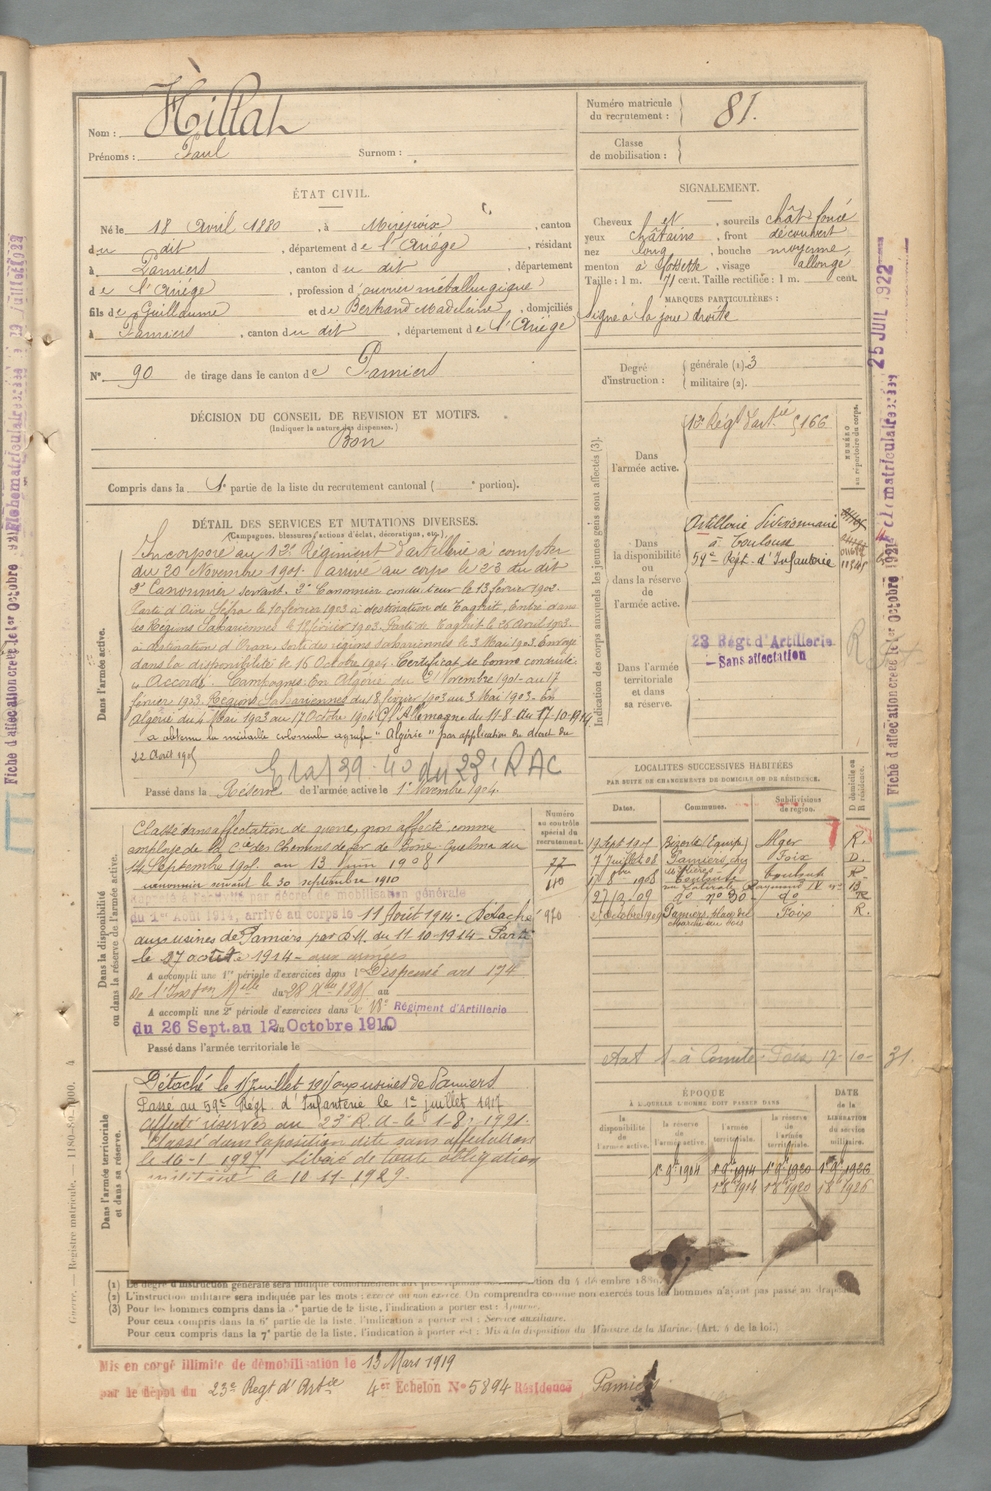 Nom : Hillat
Prénoms : Paul Surnom :
Numéro matricule du recrutement : 81.
Classe de mobilisation :
ÉTAT CIVIL.
Né le 18 Avril 1880, à Mirepoix, canton
du dit, département de l'Ariège, résidant
à Pamiers, canton du dit, département
de l'Ariège, profession d'ouvrier métallurgique
fils de Guillaume et de Bertrand Madeleine, domiciliés
à Pamiers, canton du dit, département de l'Ariège
N° 90 de tirage dans le canton de Pamiers
DÉCISION DU CONSEIL DE REVISION ET MOTIFS.
(Indiquer la nature des dispenses.)
Bon
Compris dans la 1e partie de la liste du recrutement cantonal ( e portion).
SIGNALEMENT.
Cheveux et, sourcils chât foncé
yeux châtains, front découvert
nez long, bouche moyenne
menton à fossette, visage allongé
Taille : 1 m. 71 cent. Taille rectifiée : 1 m. cent.
MARQUES PARTICULIÈRES :
Signe à la joue droite
Degré d'instruction : générale (1) 3
militaire (2).
DÉTAIL DES SERVICES ET MUTATIONS DIVERSES.
(Campagnes, blessures, actions d'éclat, décorations, etc.)
Dans l'armée active.
Incorporé au 13e Régiment d'artillerie à compter
du 20 Novembre 1901. arrivé au corps le 23 du dit
2e Canonnier servant. 2e Canonnier conducteur le 13 février 1902.
Parti d'Aïn Sefra le 10 février 1903 à destination de Taghit, Entré dans
les Régions Sahariennes le 18 février 1903. Parti de Taghit le 26 Avril 1903
à destination d'Oran, Sorti des régions sahariennes le 3 Mai 1903. Envoyé
dans la disponibilité le 16 Octobre 1904. Certificat de bonne conduite
"Accordé". Campagnes: En Algérie du Novembre 1901 au 17
février 1903. Régions Sahariennes du 18 février 1903 au 3 Mai 1903. En
Algérie du 4 Mai 1903 au 17 Octobre 1904 C/ l'Allemagne du 11-8 au 17-10-1914
a obtenu la médaille coloniale agrafe "Algérie" par application du décret du
22 Avril
Etat 39-40 du 23e RAC
Passé dans la Réserve de l'armée active le 1er Novembre 1904.
Indication des corps auxquels les jeunes gens sont affectés (3).
NUMÉRO au répertoire du corps.
Dans l'armée active. 13e Régt d'artie 5166
Dans la disponibilité ou dans la réserve de l'armée active.
Artillerie Divisionnaire
à Toulouse
59e Régt. d'Infanterie
Dans l'armée territoriale et dans sa réserve.
23 Régt d'Artillerie
Sans affectation
LOCALITÉS SUCCESSIVES HABITÉES
PAR SUITE DE CHANGEMENTS DE DOMICILE OU DE RÉSIDENCE.
Dates. Communes. Subdivisions de région. D. domicile ou R. résidence.
19 Sept 1907 Bizerte (Equip) Alger R.
7 Juillet 08 Pamiers, Foix D.
1908 Toulouse Toulouse R.
27/2/09 do no 30 do R
Pamiers, place du Foix R.
Marché au bois
Foix 17-10-31.
Dans la disponibilité ou dans la réserve de l'armée active.
Numéro au contrôle spécial du recrutement.
77
610
970
Classé dans affectation de guerre, non affecté comme
employé de la Cie des Chemins de fer de Bône-Guelma du
14 Septembre 1907 au 13 Juin 1908
canonnier servant le 30 septembre 1910
Rappelé à l'activité par décret de mobilisation générale
du 1er Août 1914, arrivé au corps le 11 Août 1914 - Détaché
aux usines de Pamiers par D.M. du 11-10-1914 - Parti
le 27 août 1914 - aux armées
A accompli une 1re période d'exercices dans l Dispensé art 174
de l'Inston Melle du 28 Xbre 1895 au
A accompli une 2e période d'exercices dans le 18e Régiment d'Artillerie
du 26 Sept. au 12 Octobre 1910
Passé dans l'armée territoriale le
Dans l'armée territoriale et dans sa réserve.
Détaché le juillet aux usines de Pamiers
Passé au 59e Régt. d'Infanterie le 1er juillet 1917
Affecté réserves au 23e R.A. le 1-8-1921.
Classé dans la position dite sans affectation
le 16-1-1927. Libéré de toute obligation
militaire le 10-11-1929.
ÉPOQUE
À LAQUELLE L'HOMME DOIT PASSER DANS
DATE de la LIBÉRATION du service militaire.
la disponibilité de l'armée active. la réserve de l'armée active. l'armée territoriale. la réserve de l'armée territoriale.
1er 9bre 1914 1er 9bre 1914 1er 9bre 1920 1er 9bre 1926
1 8 1914 1 8 1920 1 8 1926
(1) Le degré d'instruction générale sera indiqué conformément aux
(2) L'instruction militaire sera indiquée par les mots : exercé ou non exercé. On comprendra comme non exercés tous les hommes n'ayant pas passé au drapeau.
(3) Pour les hommes compris dans la 5e partie de la liste, l'indication à porter est : Ajourné.
Pour ceux compris dans la 6e partie de la liste, l'indication à porter est : Service auxiliaire.
Pour ceux compris dans la 7e partie de la liste, l'indication à porter est : Mis à la disposition du Ministre de la Marine. (Art. 4 de la loi.)
Mis en congé illimité de démobilisation le 13 Mars 1919
par le dépôt du 23e Régt d'Artie 4er Echelon N° 5894 Résidence Pamiers
Guerre. — Registre matricule.
25 JUIL 1922
Fiche d'affectation créée le 1er Octobre 1921